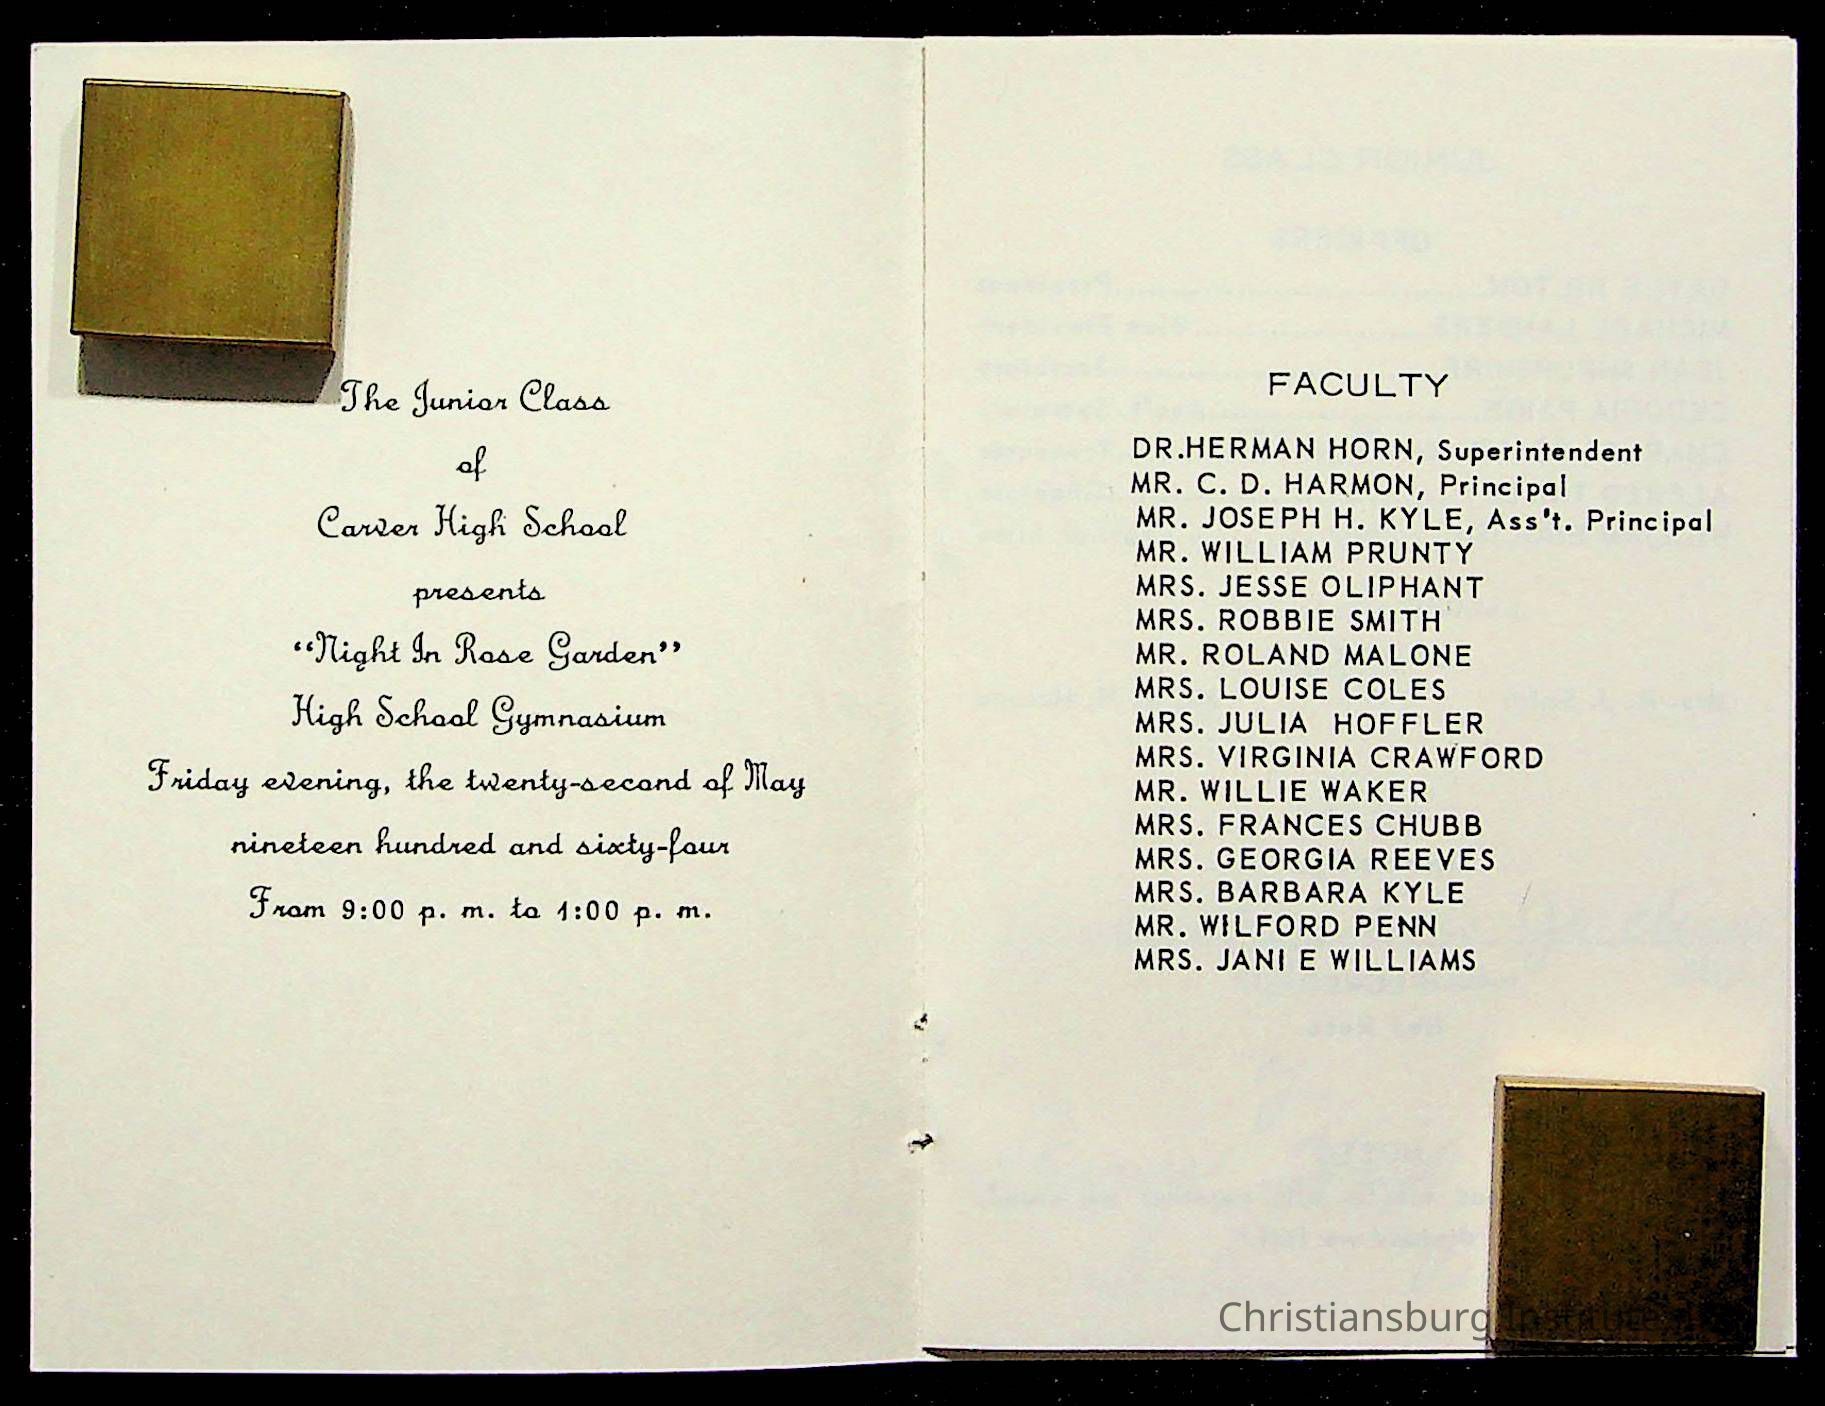 The Junior Class
of
Carver High School
presents
“Night In Rose Garden”
High School Gymnasium
Friday evening, the twenty-second of May
nineteen hundred and sixty-four
From 9:00 p. m. to 1:00 p. m.
FACULTY
DR.HERMAN HORN, Superintendent
MR. C. D. HARMON, Principal
MR. JOSEPH H. KYLE, Ass't. Principal
MR. WILLIAM PRUNTY
MRS. JESSE OLIPHANT
MRS. ROBBIE SMITH
MR. ROLAND MALONE
MRS. LOUISE COLES
MRS. JULIA HOFFLER
MRS. VIRGINIA CRAWFORD
MR. WILLIE WAKER
MRS. FRANCES CHUBB
MRS. GEORGIA REEVES
MRS. BARBARA KYLE
MR. WILFORD PENN
MRS. JANI E WILLIAMS
Christiansburg Institute